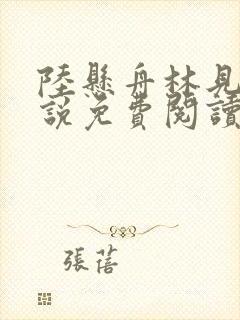 陸懸舟林見
說免費閱讀
張蓓